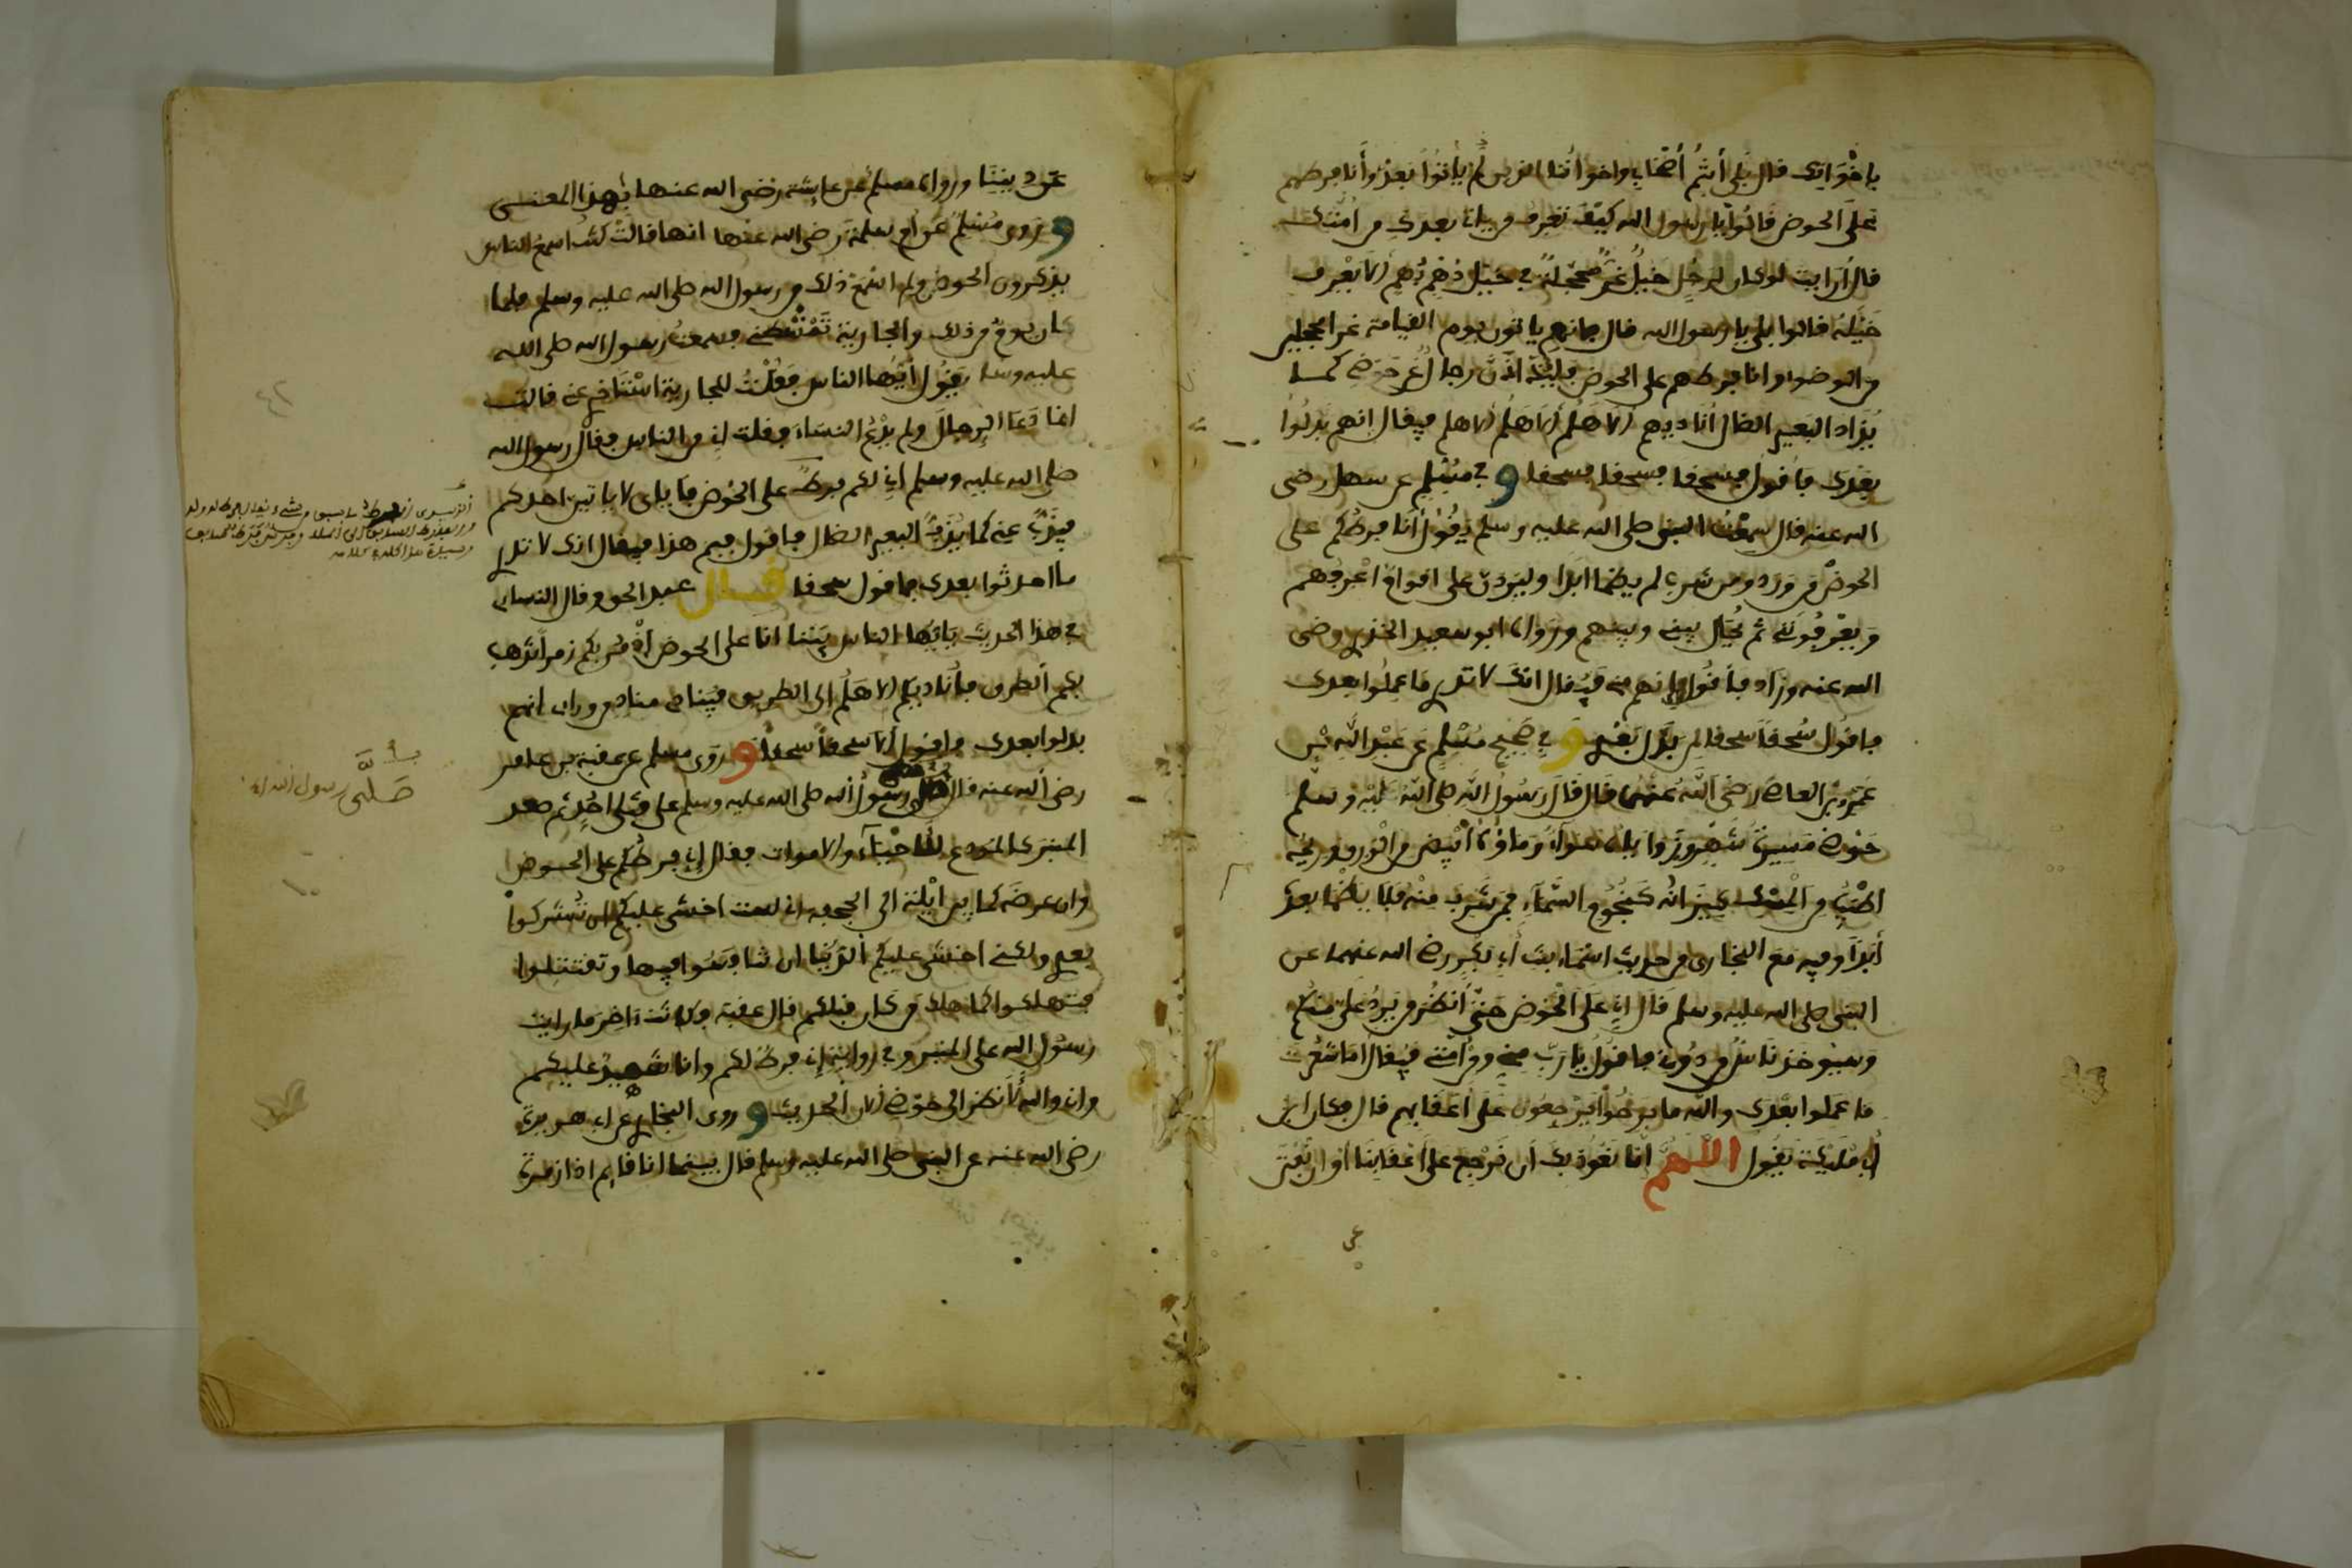 بإخوانك قال بلى أنتم أصحابي وإخواننا الذين لم يأتوا بعد وأنا فرطهم
على الحوض قالوا يا رسول الله كيف تعرف من يأت بعدك من أمتك
قال أرأيت لو كان لرجل خيل غر محجلة في خيل دهم بهم ألا يعرف
خيله قالوا بلى يا رسول الله قال فإنهم يأتون يوم القيامة غر المحجلين
من الوضوء وأنا فرطهم على الحوض فليذادن رجال عن حوضي كما
يذاد البعير الضال أناديهم ألا هلم ألا هلم ألا هلم فيقال إنهم بدلوا
بعدك فأقول فسحقا فسحقا فسحقا وفي مسلم عن سهل رضي
الله عنه قال سمعت النبي صلى الله عليه وسلم يقول أنا فرطكم على
الحوض من ورد ومن شرب لم يظما أبدا وليردن علي أقوام أعرفهم
ويعرفونني ثم يحال بيني وبينهم ورواه أبو سعيد الخدري رضي
الله عنه وزاد فأقول إنهم مني فيقال إنك لا تدري ما عملوا بعدك
فأقول سحقا سحقا لمن بدل بعدي وفي صحيح مسلم عن عبد الله بن
عمرو بن العاص رضي الله عنهما قال قال رسول الله صلى الله عليه وسلم
حوضي مسيرة شهر وزواياه سواء وماؤه أبيض من الورق وريحه
أطيب من المسك كيزانه كنجوم السماء فمن شرب منه فلا يظما بعده
أبدا وفيه مع البخاري من حديث أسماء بنت أبي بكر رضي الله عنهما عن
النبي صلى الله عليه وسلم قال إني على الحوض حتى أنظر من يرد علي منكم
وسيوخذ ناس من دوني فأقول يا رب مني ومن أمتي فيقال أما شعرت
ما عملوا بعدك والله ما برحوا يرجعون على أعقابهم قال فكان ابن
أبي مليكة يقول اللهم إنا نعوذ بك أن نرجع على أعقابنا أو أن نفتن
عن ديننا ورواه مسلم عن عايشة رضي الله عنها بهذا المعنى
وروى مسلم عن أم سلمة رضي الله عنها أنها قالت كنت أسمع الناس
يذكرون الحوض ولم أسمع ذلك من رسول الله صلى الله عليه وسلم فلما
كان يوم من ذلك والجارية تمشطني فسمعت رسول الله صلى الله
عليه وسلم يقول أيها الناس فقلت للجارية استأخري عني قالت
إنما دعا الرجال ولم يدع النساء فقلت إني من الناس فقال رسول الله
صلى الله عليه وسلم إني لكم فرط على الحوض فإياي لا يأتين أحدكم
فيذب عني كما يذب البعير الضال فأقول فيم هذا فيقال إنك لا تدري
ما أحدثوا بعدك فأقول سحقا قال عبد الحق وقال النساي
في هذا الحديث يأيها الناس بينما أنا على الحوض إذ مر بكم زمرا تذهب
بكم الطرق فأناديكم ألا هلم إلى الطريق فينادي مناد من وراي إنهم
بدلوا بعدك فأقول ألا سحقا سحقا وروى مسلم عن عقبة بن عامر
رضي الله عنه قال صلى رسول الله صلى الله عليه وسلم على قتلى أحد ثم صعد
المنبر كالمودع للأحياء والأموات فقال إني فرطكم على الحوض
وإن عرضه كما بين أيلة إلى الجحفة إني لست أخشى عليكم أن تشركوا
بعدي ولكني أخشى عليكم الدنيا أن تنافسوا فيها وتقتتلوا
فتهلكوا كما هلك من كان قبلكم قال عقبة وكانت آخر ما رأيت
رسول الله على المنبر وفي رواية إني فرط لكم وأنا شهيد عليكم
وإني والله لأنظر إلى حوضي الآن الحديث وروى البخاري عن أبي هريرة
رضي الله عنه عن النبي صلى الله عليه وسلم قال بينما أنا قايم إذا زمرة
صلى رسول الله